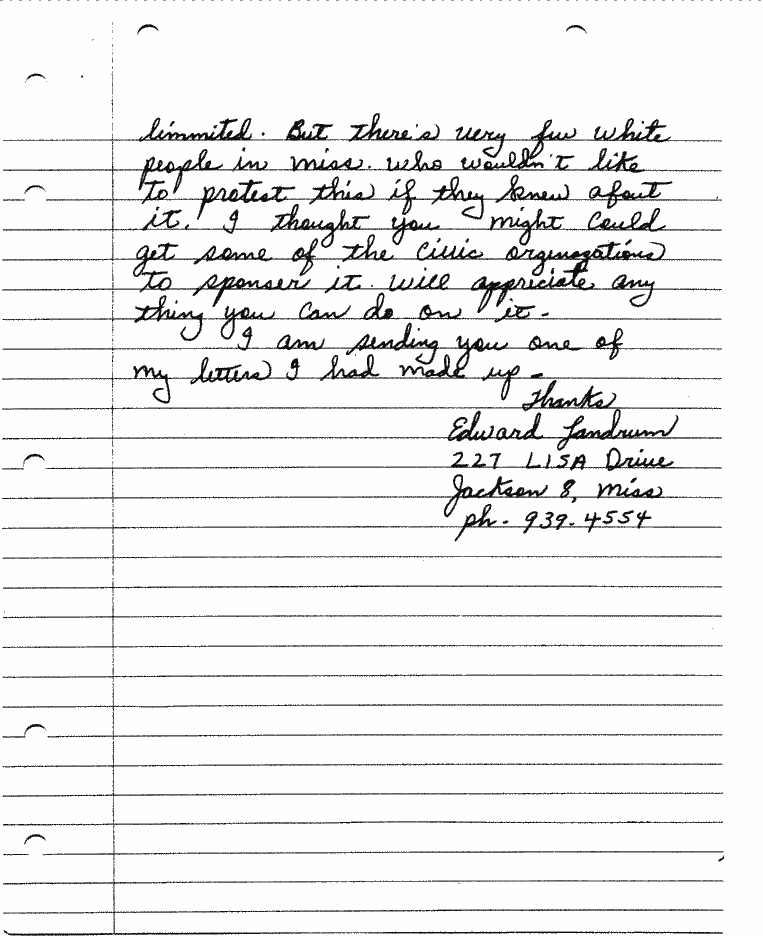 limmited. But there's very few white
people in miss. who wouldn't like
to protest this if they knew about
it. I thought you might could
get some of the civic orginazations
to sponser it. will appriciate any
thing you can do on it -
I am sending you one of
my letters I had made up -
Thanks
Edward Landrum
227 LISA Drive
Jackson 8, miss
ph. 939-4554